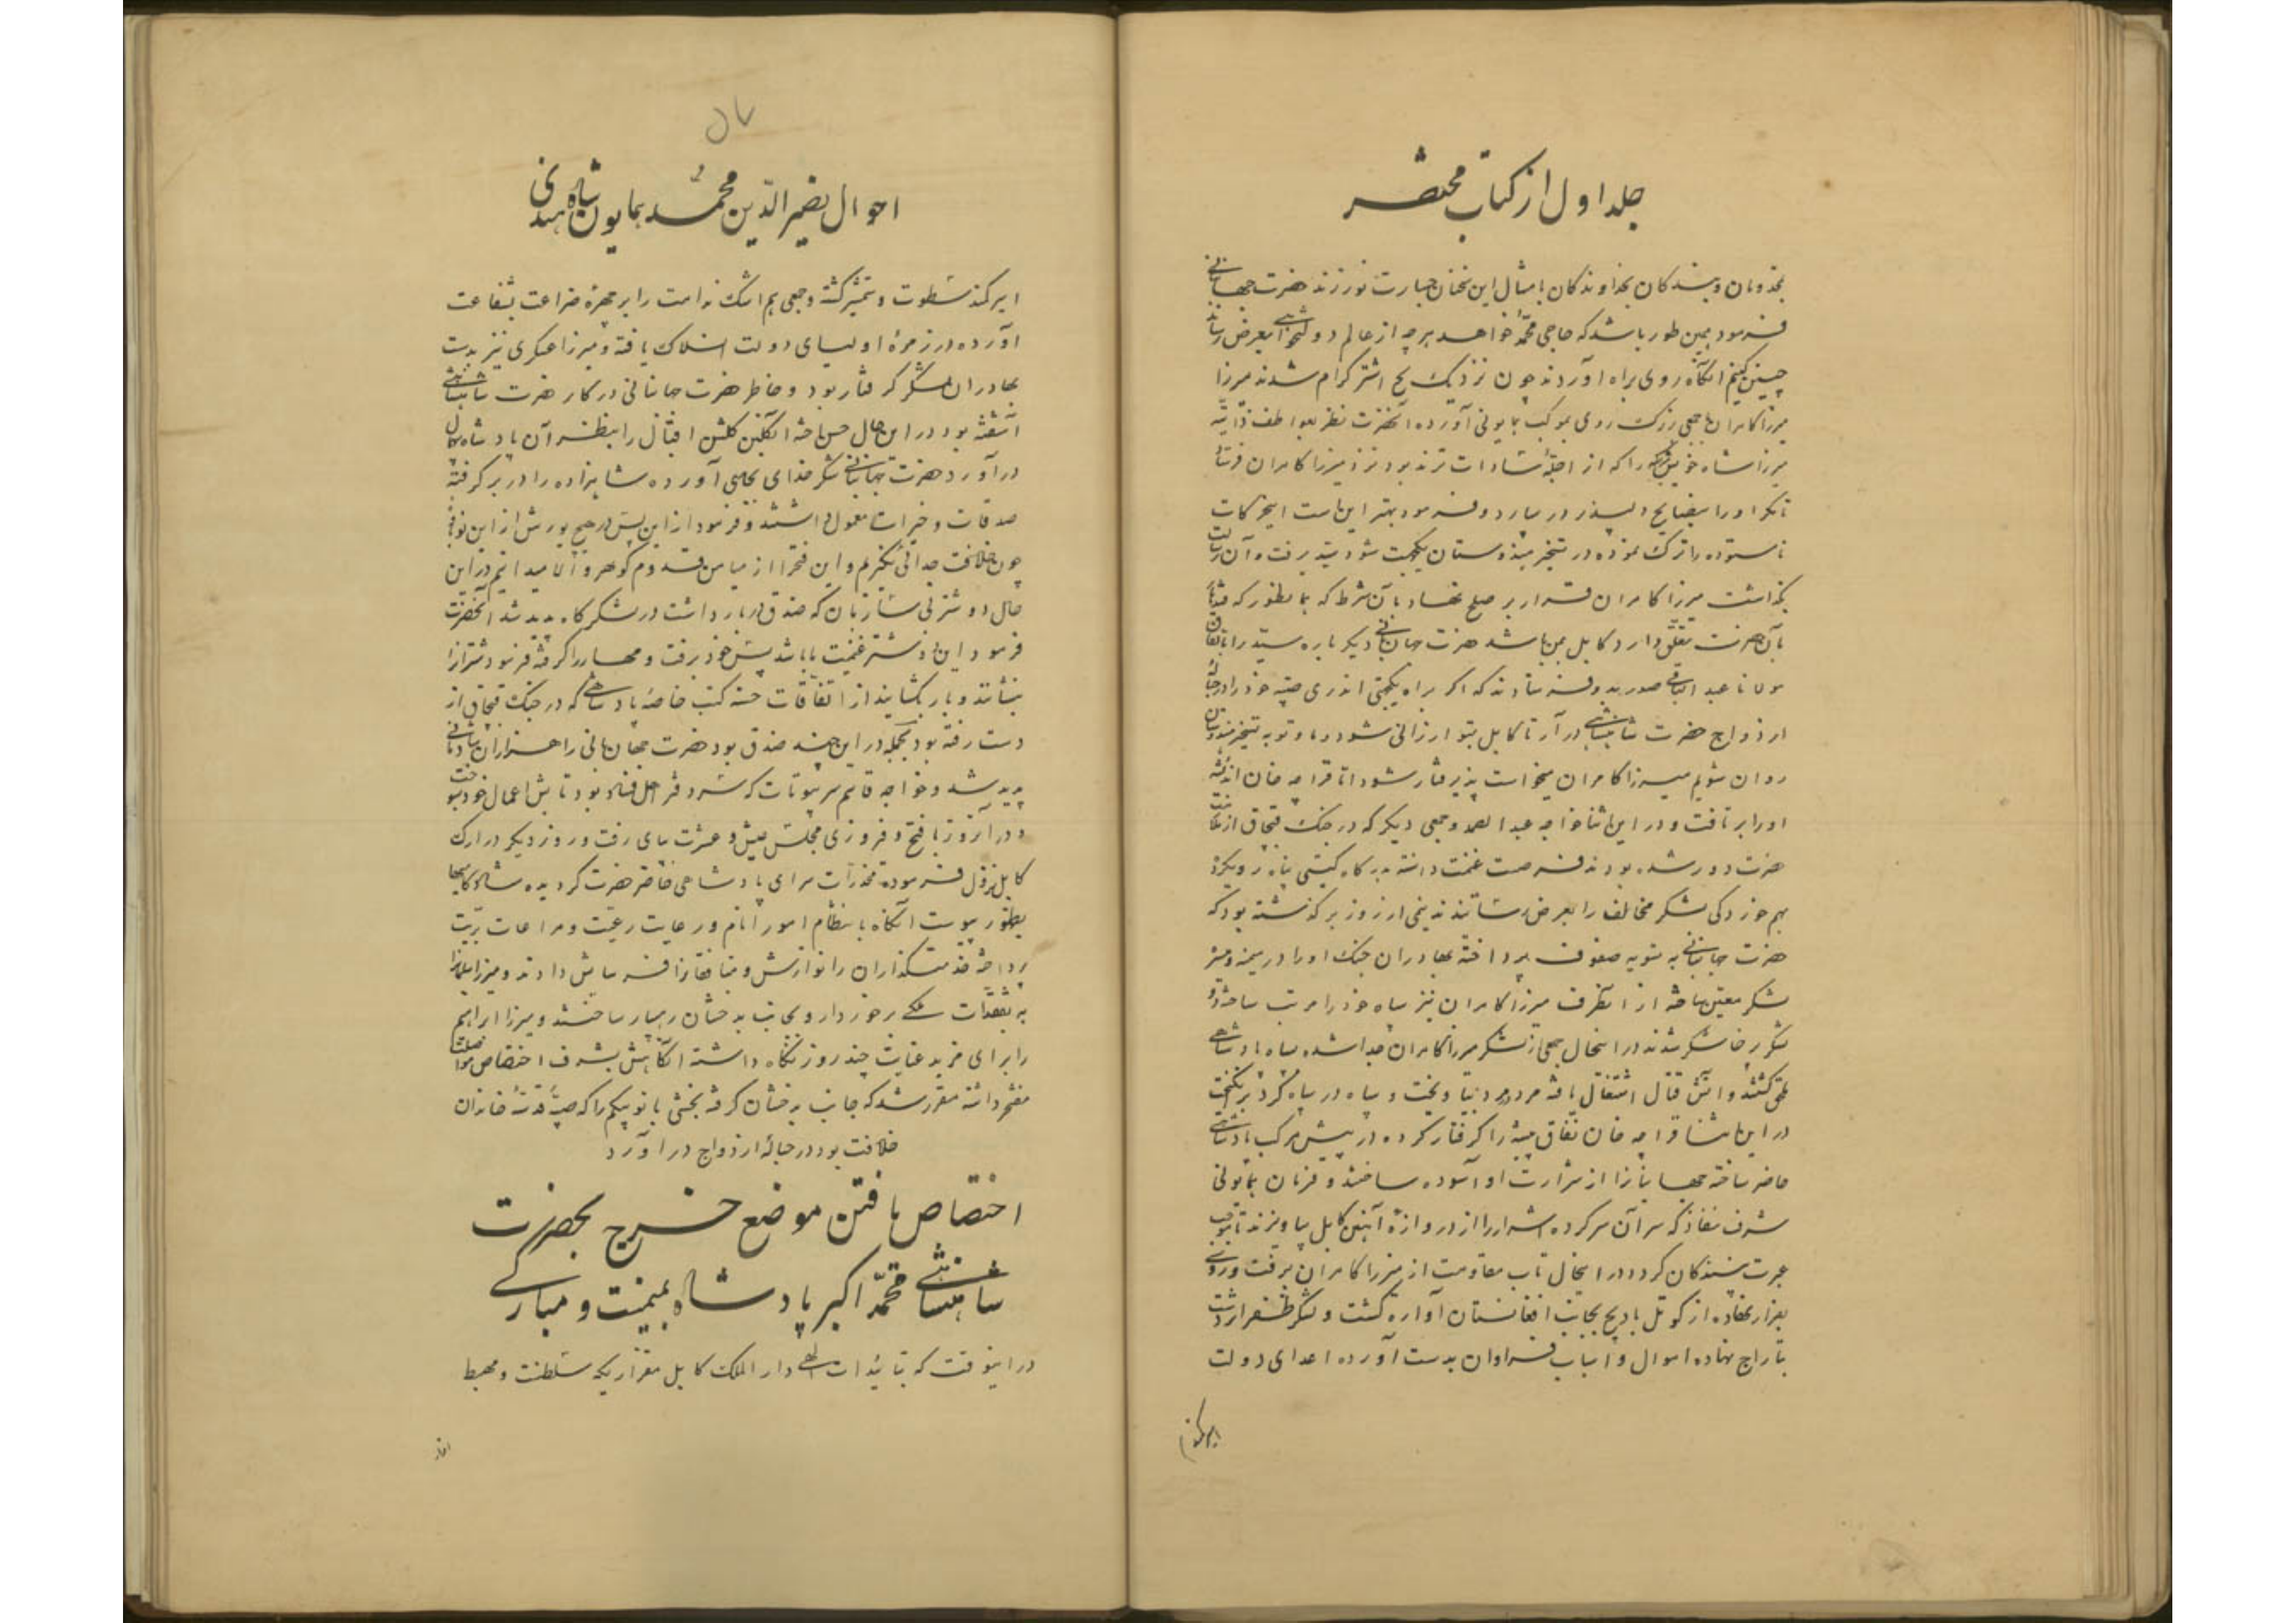 جلد اول از کتاب مختصر
بخدومان و بندگان بخداوندگان بامثال این سخنان جسارت نورزند حضرت جهانبانی
فرمود همین طور باشد که حاجی محمد خواهد هرچه از عالم دولتخواهی بعرض رساند
چنین کنیم آنگاه روی براه آوردند چون نزدیک بح اشتر گرام شدند میرزا
میرزا کامران با جمعی روی بموکب همایونی آورده آنحضرت نظر بعواطف ذاتیه
میرزا شاه خویش را که از اجلهٔ سادات ترمذ بود نزد میرزا کامران فرستاد
تا مگر او را بنصایح دلپذیر در بیارد و فرمود بهتر این است که حرکات
ناستوده را ترک نموده در تسخیر هندوستان یکجهت شود سید برفت و آن رسالت
بگذاشت میرزا کامران قرار بر صلح نهاد بآن شرط که همانطور که قندهار
بآن حضرت تعلق دارد کابل بمن باشد حضرت جهانبانی دیگر باره سید را باتفاق
مولانا عبد الباقی صدر بدو فرستادند که اگر براه یکجهتی اندری صبیه خود را در حبالهٔ
ازدواج حضرت شاهنشاهی درآر تا کابل بتو ارزانی شود و ما و تو به تسخیر هندوستان
روان شویم میرزا کامران میخواست پذیرفتار شود اما قراچه خان اندیشهٔ
او را برتافت و در این اثنا خواجه عبد الصمد و جمعی دیگر که در جنگ قبچاق از
حضرت دور شده بودند فرصت غنیمت دانسته بدرگاه گیتی پناه رو بکرد
بهم خوردگی لشکر مخالف را بعرض رسانیدند نیمی از روز برگذشته بود که
حضرت جهانبانی به تسویه صفوف پرداخته بهادران جنگ او را در میمنه و میسره
لشکر معین ساخته از آنطرف میرزا کامران نیز سپاه خود را مرتب ساخته دو
لشکر پرخاشگر شدند در اینحال جمعی از لشکر میرزا کامران جدا شده سپاه پادشاهی
ملحق گشتند و آتش قتال اشتعال یافته مرد در مرد و سپاه در سپاه گرد برنگیخت
در این اثنا قراچه خان نفاق پیشه را گرفتار کرده در پیش مرکب پادشاهی
حاضر ساخته جهانیانرا از شرارت او آسوده ساختند و فرمان همایونی
شرف نفاذ که سر آن سرکرده اشرار را از دروازهٔ آهنین کابل بیاویزند تا موجب
عبرت بینندگان گردد در اینحال تاب مقاومت از میرزا کامران برفت و روی
بفرار نهاده از کوتل بادیج بجانب افغانستان آواره گشت و لشکر ظفر اثر دست
بتاراج نهاده اموال و اسباب فراوان بدست آورده اعدای دولت
اسیر کمند
۵۷
احوال نصیر الدین محمد همایون شاه هندی
اسیر کمند سطوت و شمشیر گشته و جمعی هم اشک ندامت را بر چهره ضراعت بشفاعت
آورده در زمرهٔ اولیای دولت انسلاک یافته و میرزا عسکری نیز بدست
بهادران لشکر گرفتار بود و خاطر حضرت جهانبانی در کار حضرت شاهنشاهی
آشفته بود در این حال حسن اخته آن گلبن گلشن اقبال را بنظر آن پادشاه بیهمال
درآورد حضرت جهانبانی شکر خدای بجای آورده شاهزاده را در بر گرفته
صدقات و خیرات معمول داشتند و فرمود از این پس در هیچ یورش از این نوباوهٔ
چون خلافت جدائی نگیریم و این فتح را از میامن قدوم گوهر والا میدانیم در این
حال دو شتر بی ساربان که صندق در بار داشت در لشکرگاه پدید شد آنحضرت
فرمود این دو شتر غنیمت ما باشد پس خود برفت و مهار را گرفته فرمود شتران را
بنشانند و بار بگشایند از اتفاقات حسنه کتب خاصه پادشاهی که در جنگ قبچاق از
دست رفته بود بجمله در این چند صندق بود حضرت جهانبانی را هزاران شادمانی
پدید شد و خواجه قاسم میر بیوتات که سر دفتر اهل فساد بود بآتش اعمال خود بسوخت
و در آنروز با فتح و فروزی مجلس عیش و عشرت بپای رفت و روز دیگر در ارک
کابل نزول فرموده مخدرات سرای پادشاهی حاضر حضرت گردیده
بظهور پیوست آنگاه بانتظام امور انام و رعایت رعیت و مراعات بریت
پرداخته خدمتگذاران را نوازش و منافقانرا فرسایش دادند و میرزا سلیمانرا
به تفقدات ملکی برخوردار و بجانب بدخشان رهسپار ساختند و میرزا ابراهیم
را برای مزید عنایت چند روز نگاه داشته آنگاهش بشرف اختصاص مواصلت
مفتخر داشته مقرر شد که جانب بدخشان گرفته بخشی بانو بیگم را که صبیهٔ قدسیهٔ خاندان
خلافت بود در حبالهٔ ازدواج درآورد
اختصاص یافتن موضع خرج بحضرت
شاهنشاهی محمد اکبر پادشاه بمیمنت و مبارکی
در اینوقت که بتائیدات الهی دار الملک کابل مقر اریکه سلطنت و مهبط